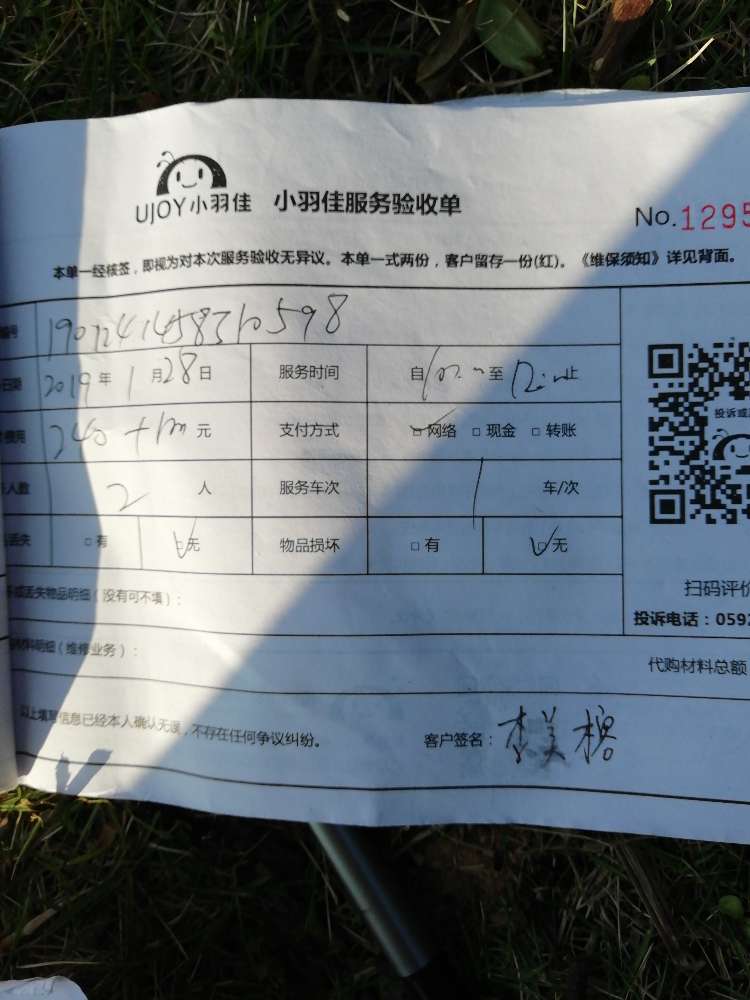 UJOY小羽佳 小羽佳服务验收单
No.1295
本单一经核签，即视为对本次服务验收无异议。本单一式两份，客户留存一份(红)。《维保须知》详见背面。
编号
日期 2019年1月28日 服务时间 自 至 止
费用 240 元 支付方式 □网络 □现金 □转账
人数 2 人 服务车次 1 车/次
丢失 □有 □无 物品损坏 □有 □无
投诉或
丢失物品明细（没有可不填）：
扫码评价
投诉电话：0592
材料明细（维修业务）：
代购材料总额
以上填写信息已经本人确认无误，不存在任何争议纠纷。
客户签名：李美榕